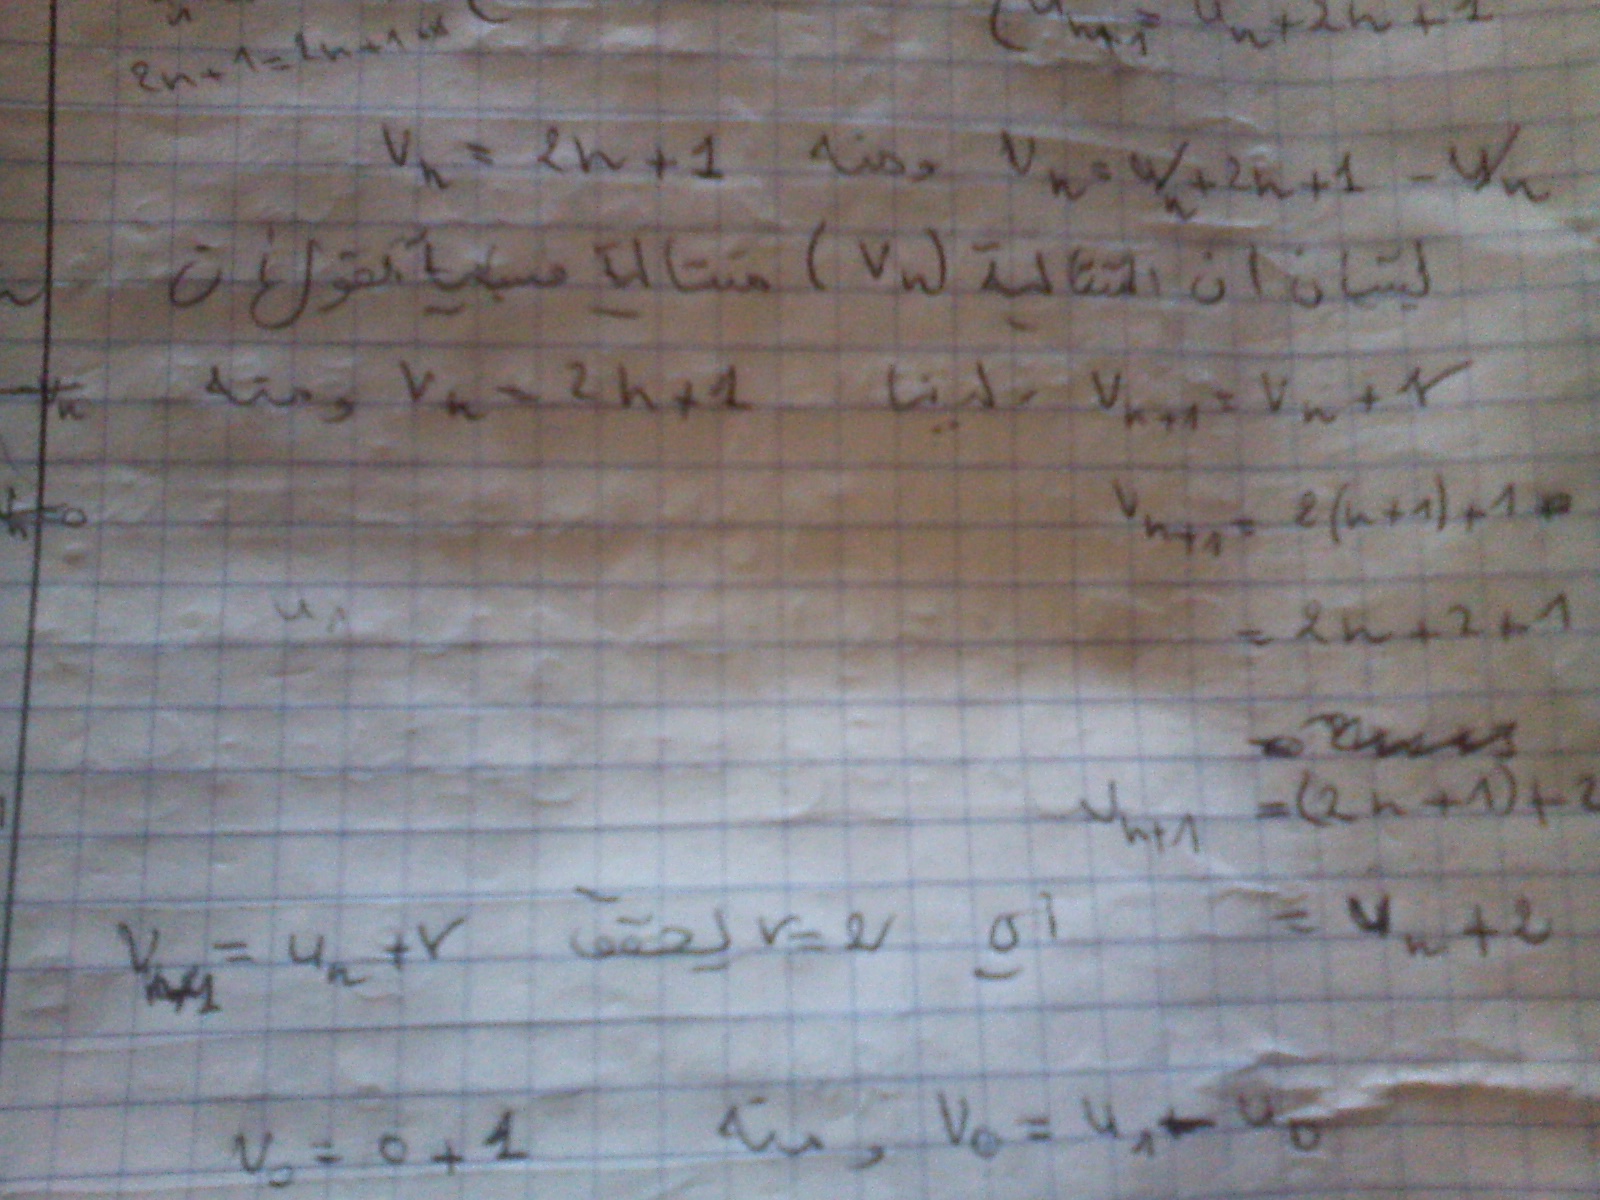 u_{n+1} = u_n + 2n + 1
2n+1=2n+1
V_n = u_n + 2n + 1 - u_n ومنه V_n = 2n + 1
لتبيان ان المتتالية (V_n) متتالية حسابية نقول أن
V_{n+1} = V_n + r لدينا V_n = 2n + 1 ومنه
V_{n+1} = 2(n+1) + 1
u_1
= 2n + 2 + 1
V_{n+1} = (2n + 1) + 2
= u_n + 2 أي r = 2 V_{n+1} = u_n + r
V_0 = u_1 - u_0 ومنه V_0 = 0 + 1